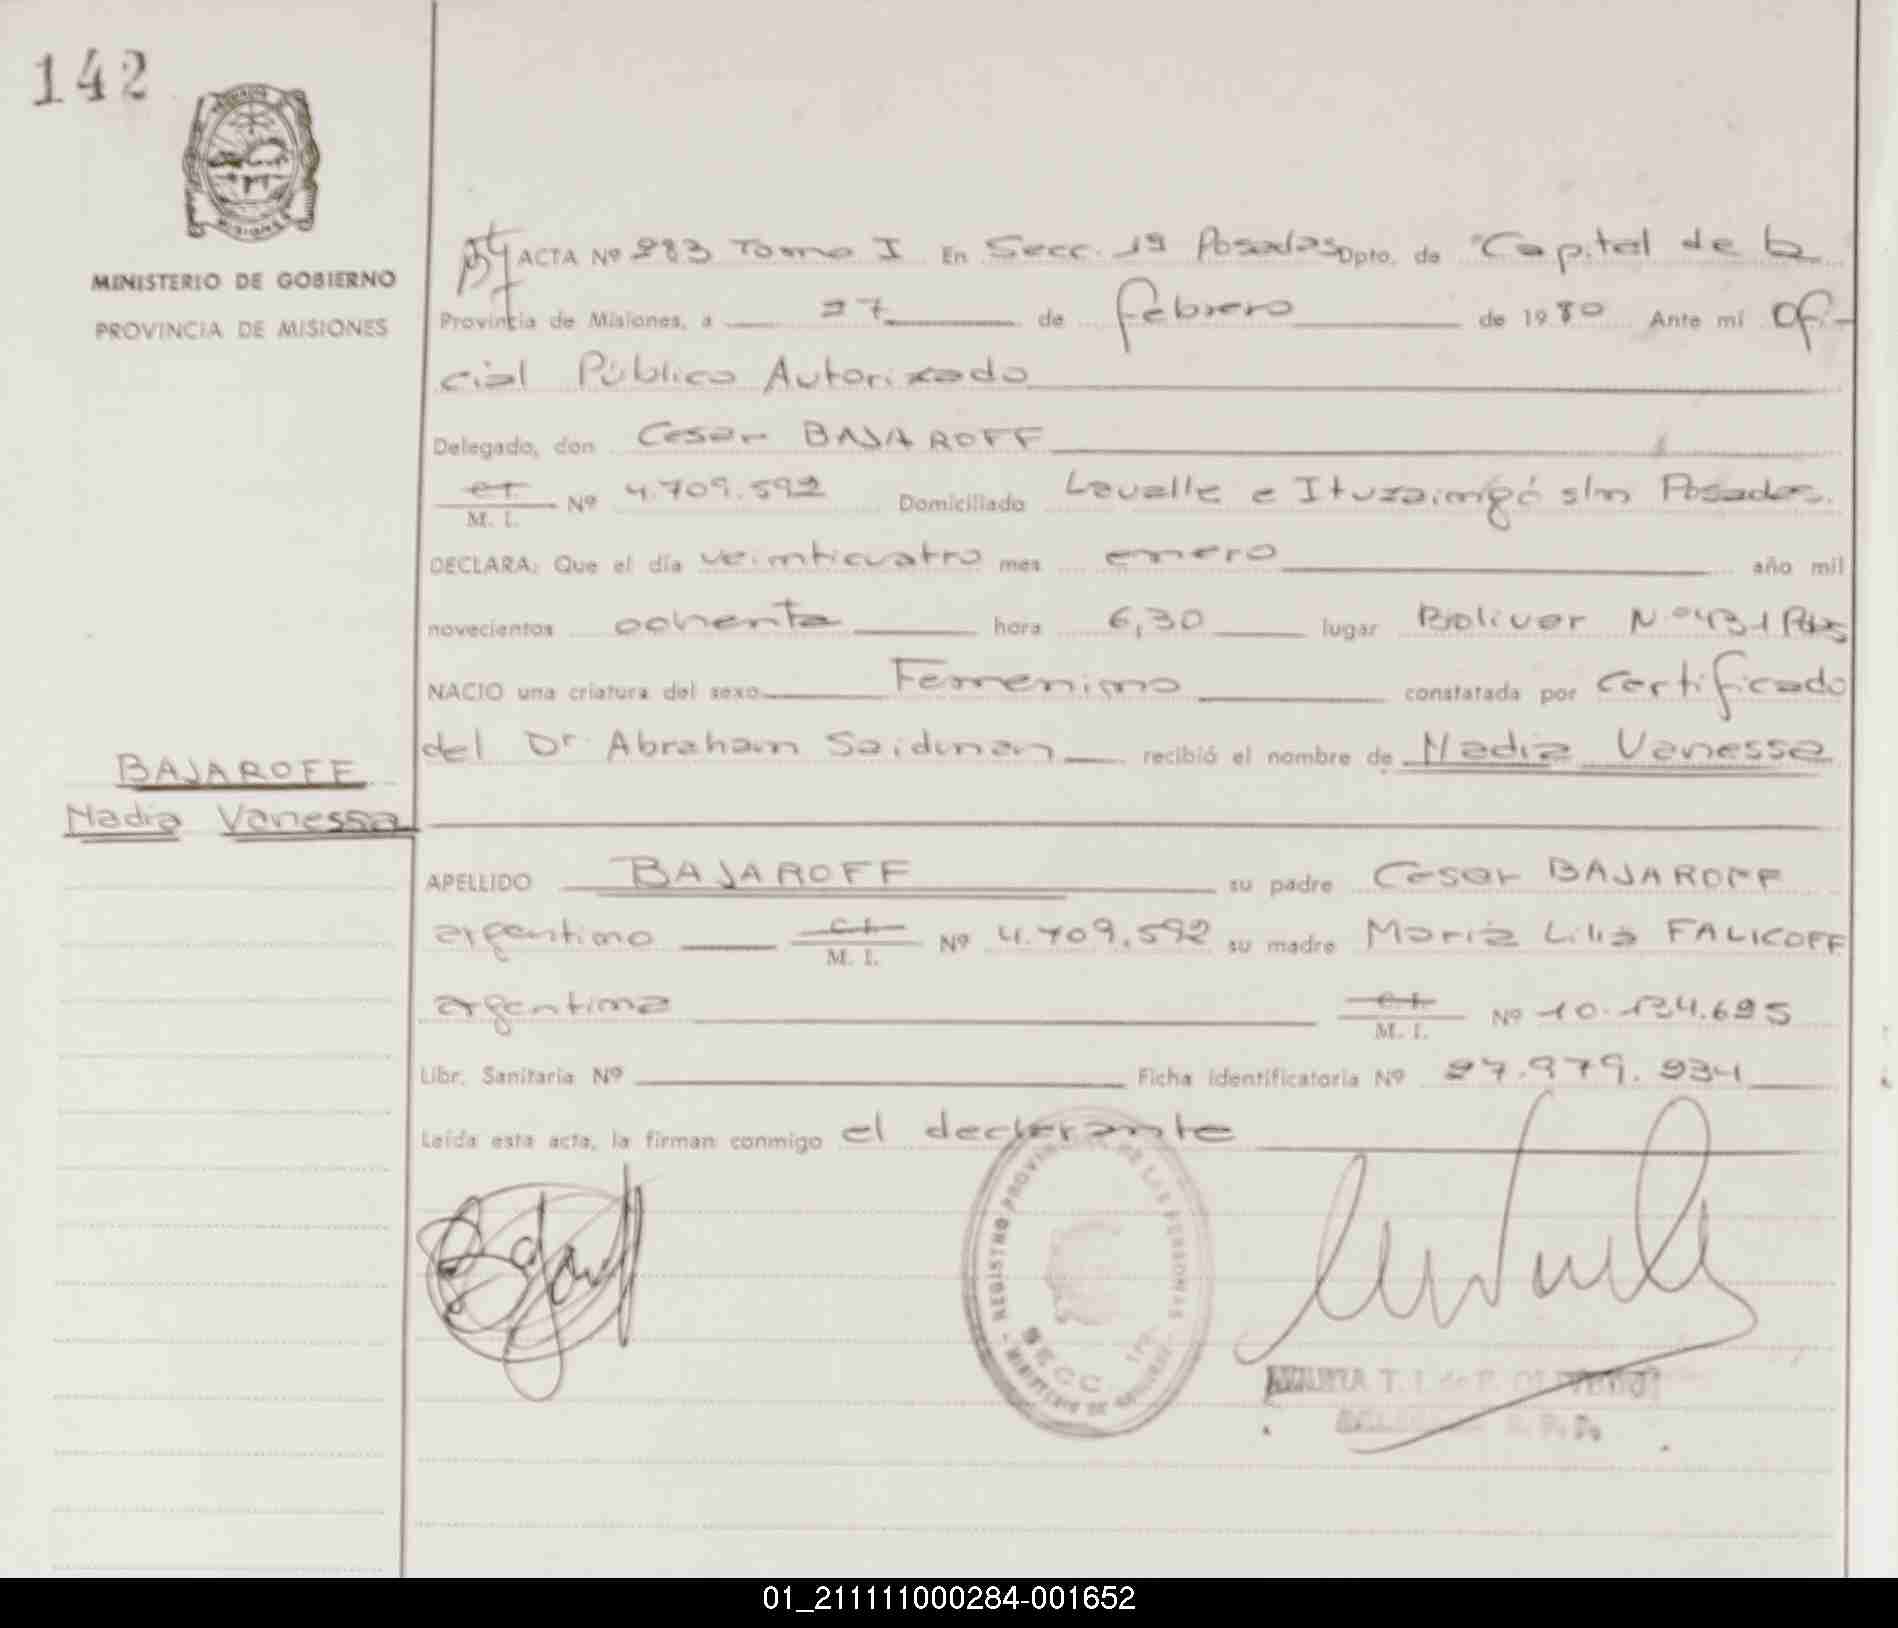 142
MINISTERIO DE GOBIERNO
PROVINCIA DE MISIONES
ACTA Nº 283 Tomo I En Secc. 1ª Posadas Dpto. de Capital de la
Provincia de Misiones, a 27 de febrero de 1980 Ante mi Ofi-
cial Público Autorizado
Delegado, don Cesar BAJAROFF
C.I. M. I. Nº 4.709.592 Domiciliado Lavalle e Ituzaingó s/n Posadas.
DECLARA: Que el día veinticuatro mes enero año mil
novecientos ochenta hora 6,30 lugar Bolivar N.º 431 Pdas
NACIO una criatura del sexo Femenino constatada por certificado
del Dr. Abraham Saidman recibió el nombre de Nadia Vanessa
BAJAROFF
Nadia Vanessa
APELLIDO BAJAROFF su padre Cesar BAJAROFF
argentino C.I. M. I. Nº 4.709.592 su madre Maria Lilia FALICOFF
argentina C.I. M. I. Nº 10.134.695
Libr. Sanitaria Nº Ficha identificatoria Nº 27.979.934
Leída esta acta, la firman conmigo el declarante
REGISTRO PROVINCIAL DE LAS PERSONAS
SECC. 1ra.
MINISTERIO DE GOBIERNO
01_211111000284-001652